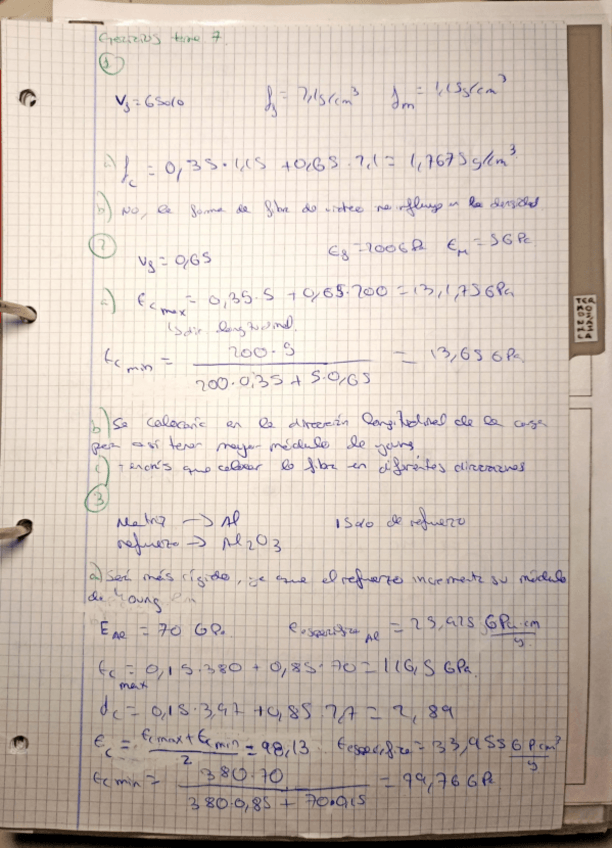 Ejercicios tema 7
1
Vf = 65%
ρf = 2,1g/cm³
ρm = 1,15g/cm³
a) ρc = 0,35 · 1,15 + 0,65 · 2,1 = 1,7675 g/cm³
b) No, la forma de fibra de vidrio no influye en la densidad
2
Vf = 0,65
Ef = 200GPa
Em = 5GPa
a) Ec max = 0,35·5 + 0,65·200 = 131,75GPa
dir. longitudinal.
Ec min = 200·5 / 200·0,35 + 5·0,65 = 13,65 GPa
b) Se colocaría en la dirección longitudinal de la carga
para así tener mayor módulo de young
c) Tendrás que colocar la fibra en diferentes direcciones
3
Matriz → Al
15% de refuerzo
refuerzo → Al2O3
a) Será más rígido, ya que el refuerzo incrementa su módulo
de Young
EAl = 70 GPa
Eespecífico Al = 25,925 GPa·cm/g
Ec max = 0,15·380 + 0,85·70 = 116,5 GPa.
dc = 0,15·3,97 + 0,85·2,7 = 2,89
Ec = Ecmax+Ecmin / 2 = 98,13
Eespecífico = 33,955 GPacm³/g
Ec min = 380·70 / 380·0,85 + 70·0,15 = 79,76GPa